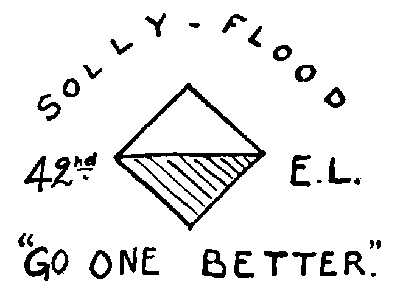 SOLLY-FLOOD
42nd E.L.
"GO ONE BETTER."